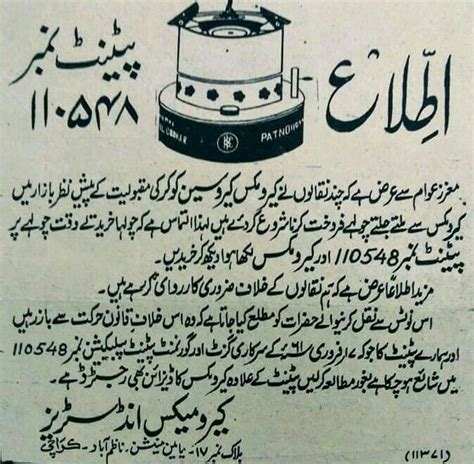 اطلاع
پیٹنٹ نمبر
۱۱۰۵۴۸
PATNO110548
معزز عوام سے عرض ہے کہ چند نقالوں نے کیرومکس کیروسین کوکر کی مقبولیت کے پیش نظر بازار میں
کیرومکس سے ملتے جلتے چولہے فروخت کرنا شروع کردئے ہیں لہذا التماس ہے کہ چولہا خریدتے وقت چولہے پر
پیٹنٹ نمبر 110548 اور کیرومکس لکھا ہوا دیکھ کر خریدیں۔
مزید اطلاعاً عرض ہے کہ ہم نقالوں کے خلاف ضروری کارروائی کررہے ہیں۔
اس نوٹس سے نقل کرنیوالے حضرات کو مطلع کیا جاتا ہے کہ وہ اس خلاف قانون حرکت سے باز رہیں
اور ہمارے پیٹنٹ کا جو کہ ۱۷ فروری ۶۱ء کے سرکاری گزٹ اور گورنمنٹ پیٹنٹ سپلیکیشن نمبر 110548
میں شائع ہو چکا ہے بغور مطالعہ کرلیں پیٹنٹ کے علاوہ کیرومکس کا ڈیزائن بھی رجسٹرڈ ہے۔
کیرومیکس انڈسٹریز
بلاک نمبر ۱۷- یامین مینشن۔ ناظم آباد۔ کراچی
(۱۱۳۷۱)